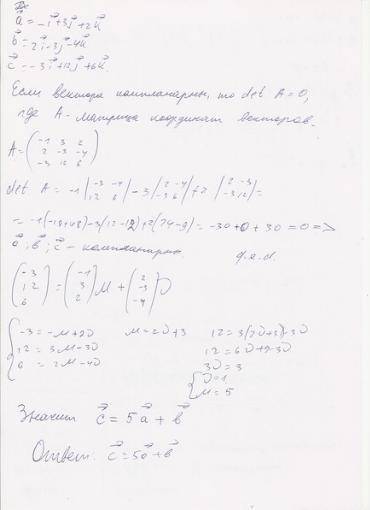 a⃗ = -i⃗+3j⃗+2k⃗
b⃗ = 2i⃗-3j⃗-4k⃗
c⃗ = -3i⃗+12j⃗+6k⃗.
Если вектора компланарны, то det A = 0,
где A - матрица координат векторов.
A = (-1 3 2
2 -3 -4
-3 12 6)
det A = -1 |-3 -4; 12 6| - 3 |2 -4; -3 6| + 2 |2 -3; -3 12| =
= -1(-18+48)-3(12-12)+2(24-9) = -30+0+30 = 0 =>
a⃗; b⃗; c⃗ - компланарны. q.e.d.
(-3; 12; 6) = (-1; 3; 2) μ + (2; -3; -4) ν
{ -3 = -μ+2ν μ = 2ν+3 12 = 3(2ν+3)-3ν
12 = 3μ-3ν 12 = 6ν+9-3ν
6 = 2μ-4ν 3ν = 3
{ ν = 1
μ = 5
Значит c⃗ = 5a⃗ + b⃗
Ответ: c⃗ = 5a⃗ + b⃗